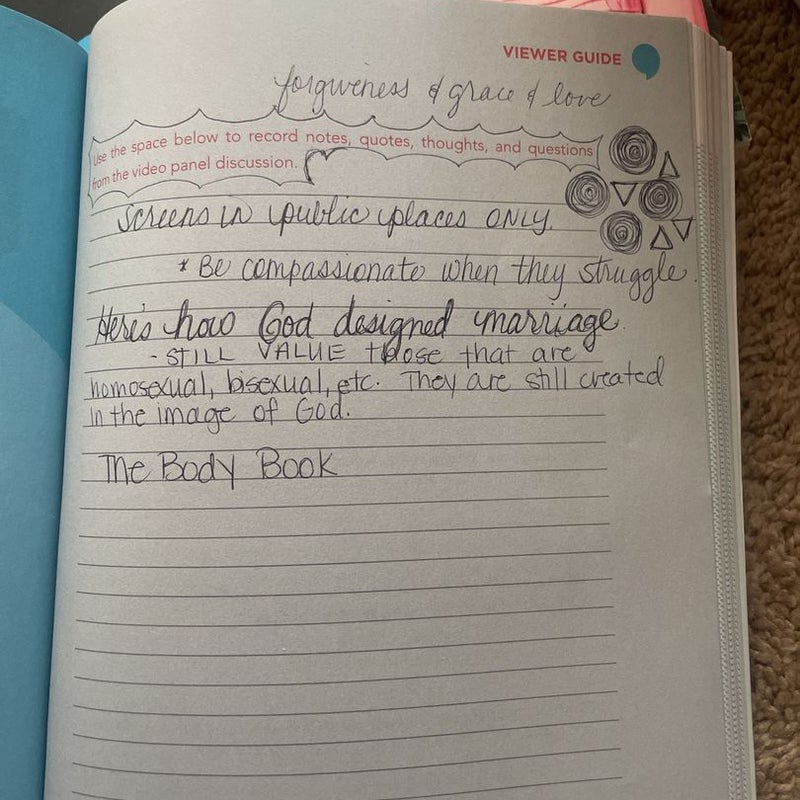 VIEWER GUIDE
forgiveness & grace & love
Use the space below to record notes, quotes, thoughts, and questions
from the video panel discussion.
Screens in public places ONLY.
* Be compassionate when they struggle.
Here's how God designed marriage.
- STILL VALUE those that are
homosexual, bisexual, etc. They are still created
in the image of God.
The Body Book